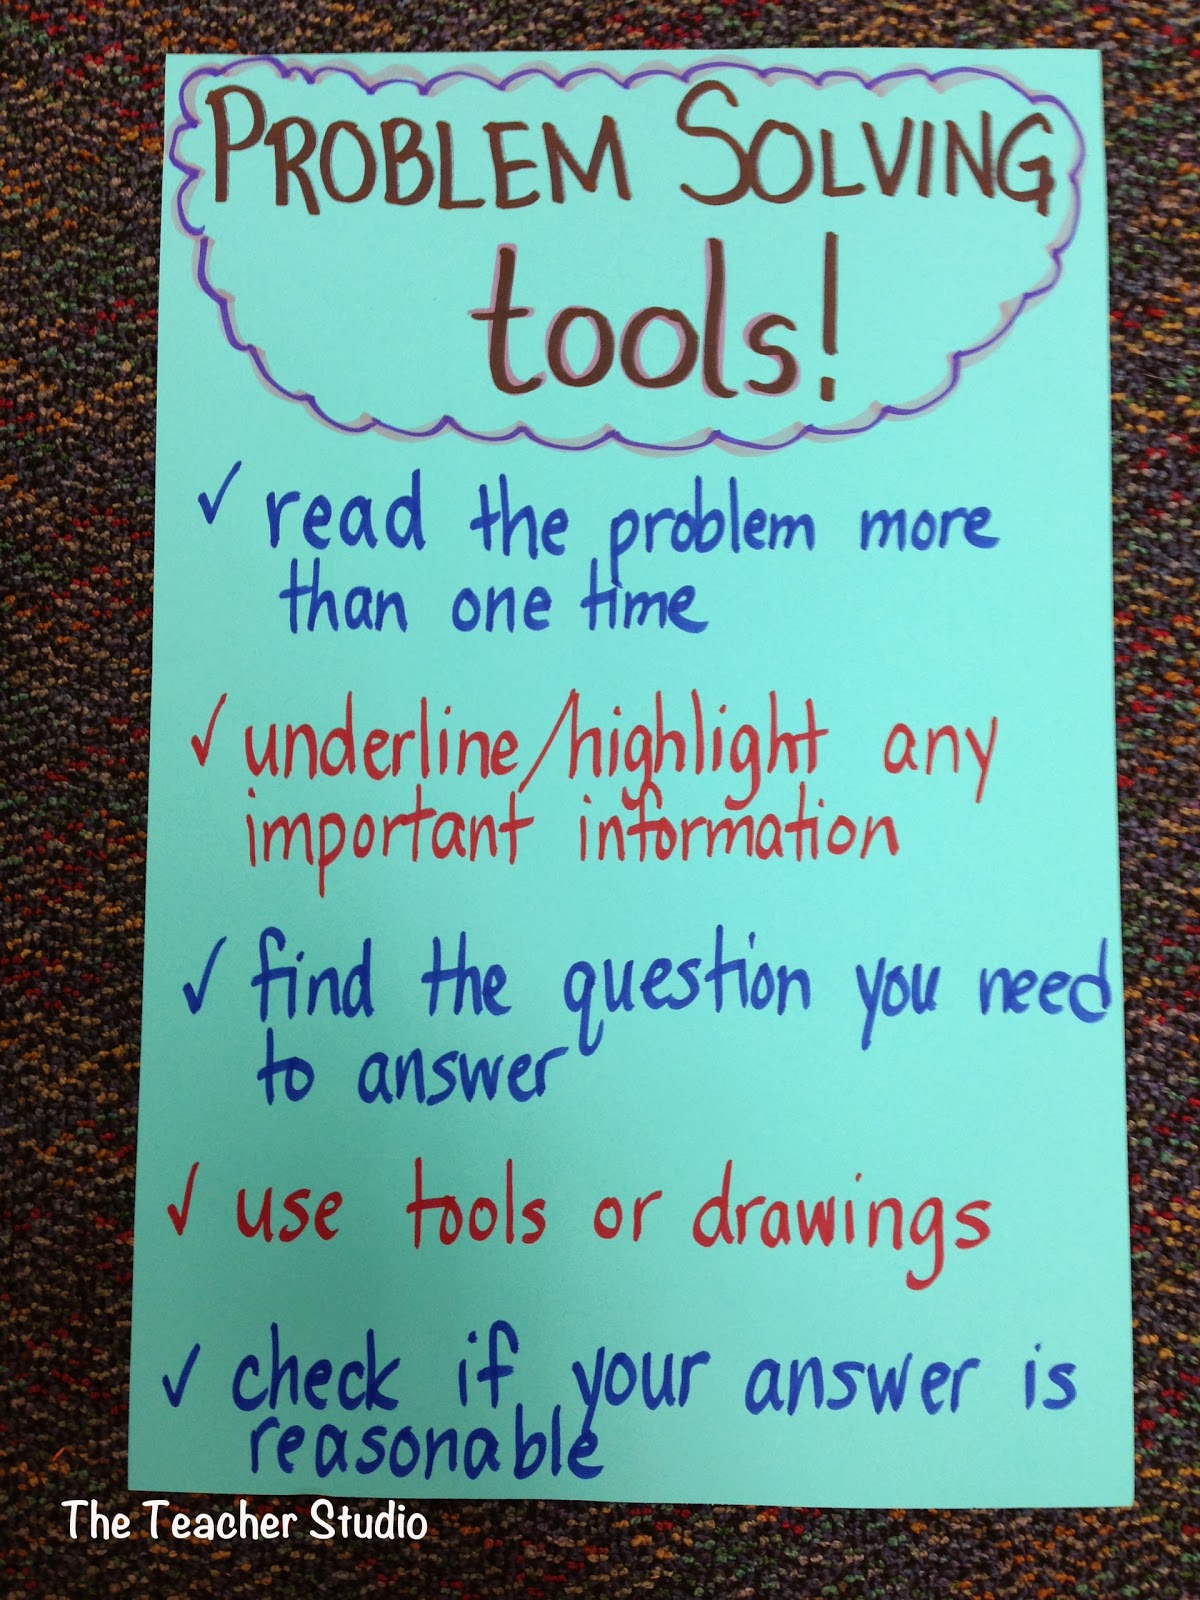 PROBLEM SOLVING
tools!
✓ read the problem more
than one time
✓ underline/highlight any
important information
✓ find the question you need
to answer
✓ use tools or drawings
✓ check if your answer is
reasonable
The Teacher Studio